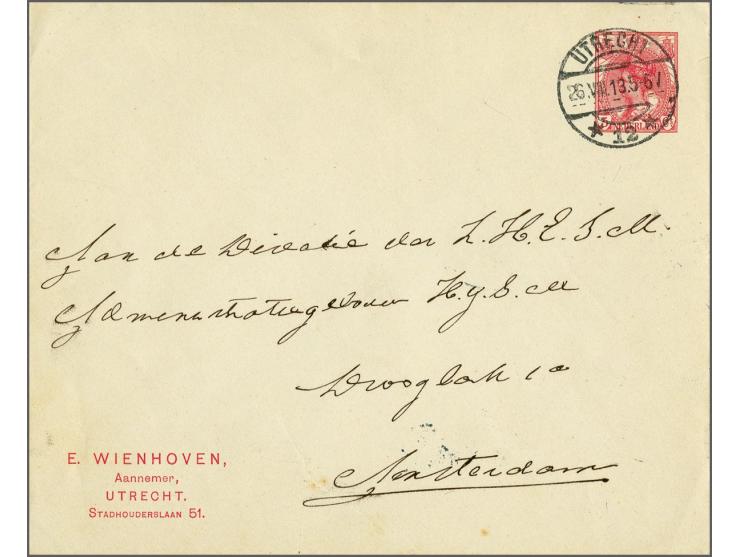 UTRECHT
26.VII.13.5-6N
12
NEDERLAND
Aan de Directie der L.H.E.S.M.
Administratiegebouw H.y.S.M
Droogbak 1a
Amsterdam
E. WIENHOVEN,
Aannemer,
UTRECHT.
STADHOUDERSLAAN 51.